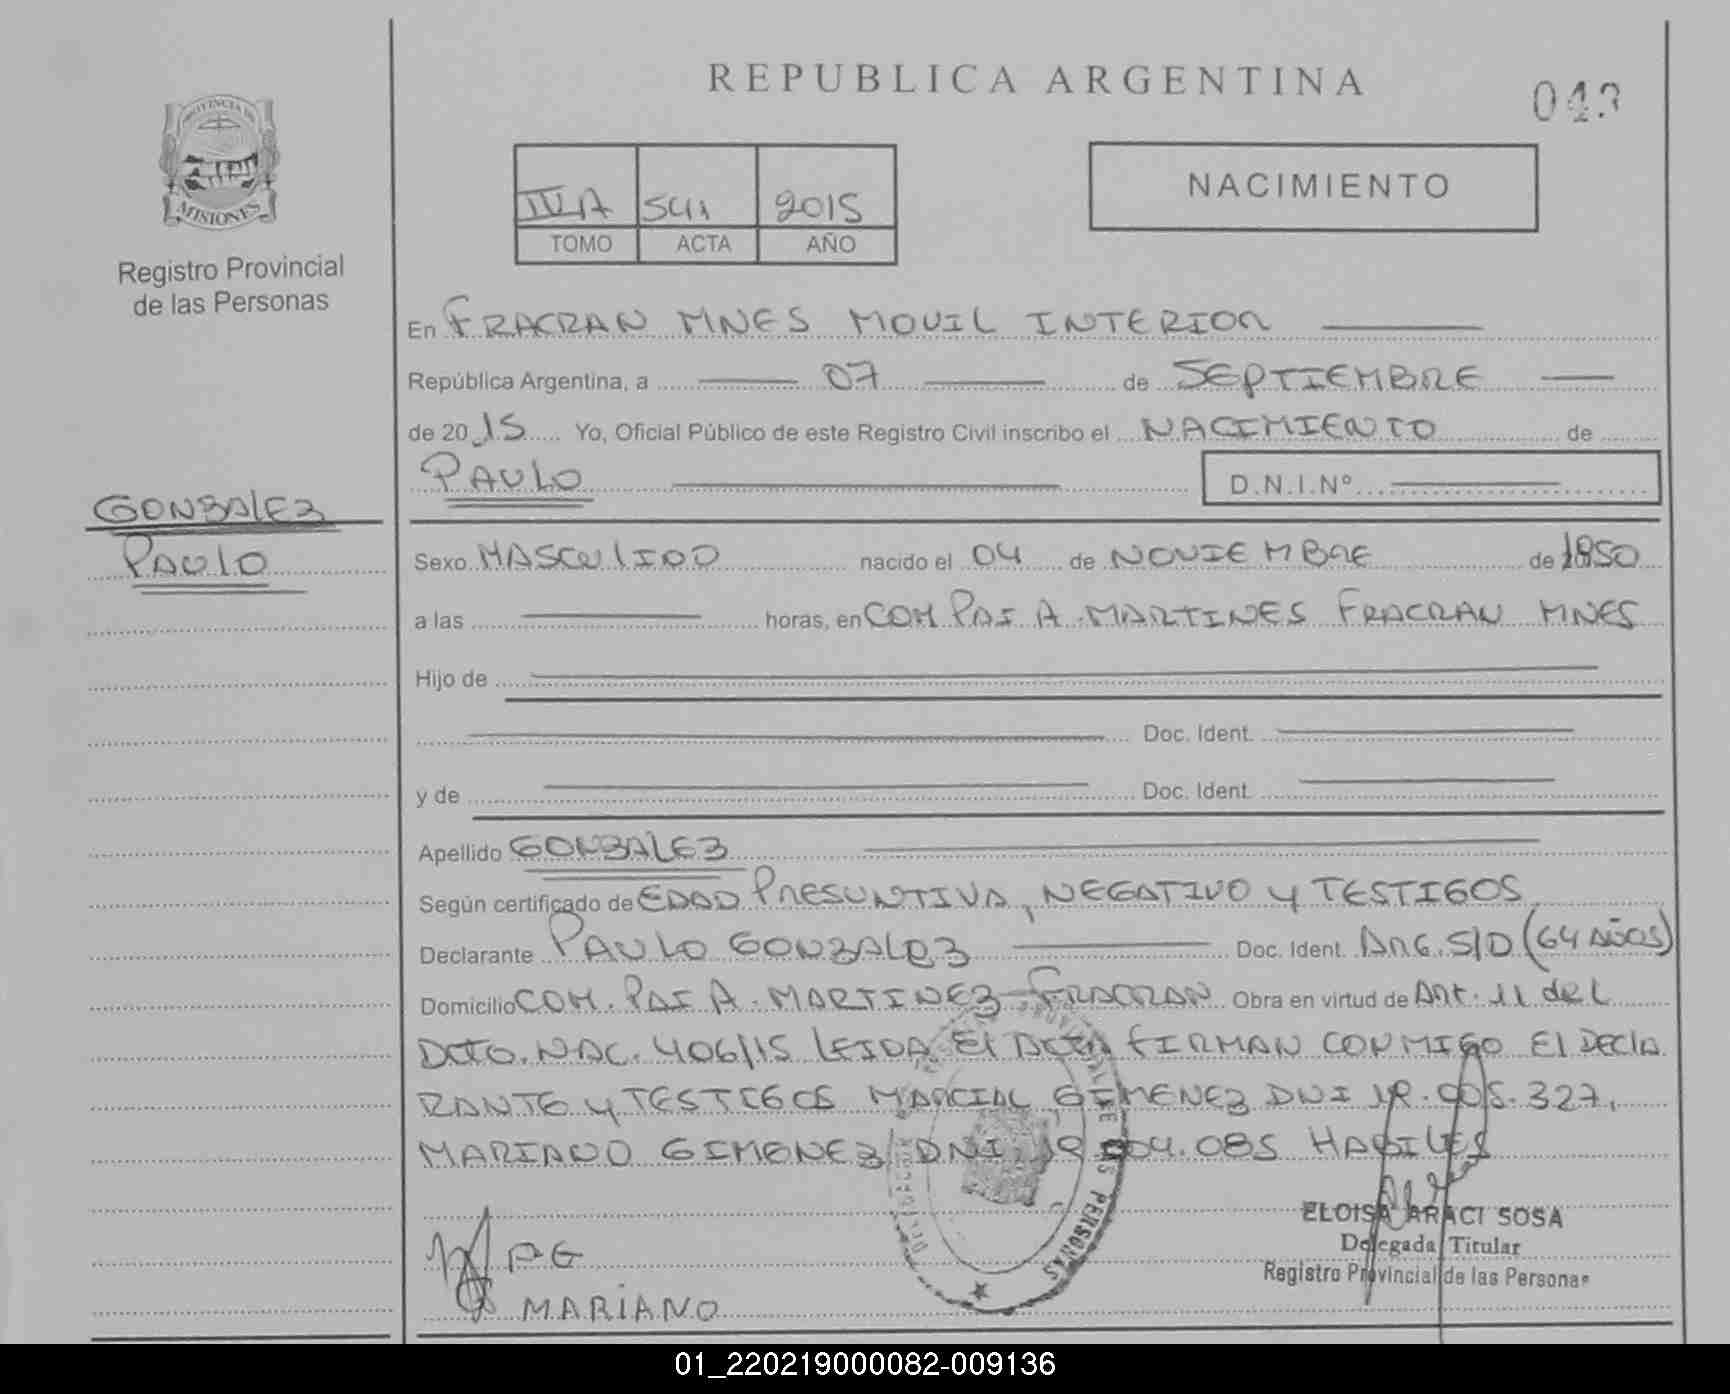 REPUBLICA ARGENTINA
PROVINCIA DE
MISIONES
Registro Provincial
de las Personas
IVA 541 2015
TOMO ACTA AÑO
NACIMIENTO
En FRACRAN MNES MOVIL INTERIOR
República Argentina, a 07 de SEPTIEMBRE
de 2015 Yo, Oficial Público de este Registro Civil inscribo el NACIMIENTO de
PAULO D.N.I.Nº
GONZALEZ
PAULO
Sexo MASCULINO nacido el 04 de NOVIEMBRE de 1950
a las horas, en COM PAI A. MARTINES FRACRAN MNES
Hijo de
Doc. Ident.
y de Doc. Ident.
Apellido GONZALEZ
Según certificado de EDAD PRESUNTIVA, NEGATIVO y TESTIGOS
Declarante PAULO GONZALEZ Doc. Ident. ARG. S/D (64 AÑOS)
Domicilio COM. PAI A. MARTINEZ FRACRAN Obra en virtud de Art. 11 del
DCTO. NAC. 406/15 LEIDA El ACTA FIRMAN CONMIGO El DECLA
RANTE y TESTIGOS MARCIAL GIMENEZ DNI .327,
MARIANO GIMENEZ DNI .085 HABILES
PERSONAS
ELOISA ARACI SOSA
Delegada Titular
Registro Provincial de las Personas
PG
MARIANO
01_220219000082-009136